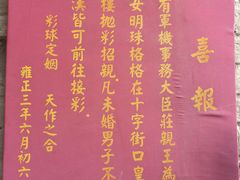 喜報
有軍機事務大臣莊親王為
女明珠格格在十字街口皇
樓拋彩招親凡未婚男子不
漢皆可前往接彩
彩球定姻 天作之合
雍正三年六月初六